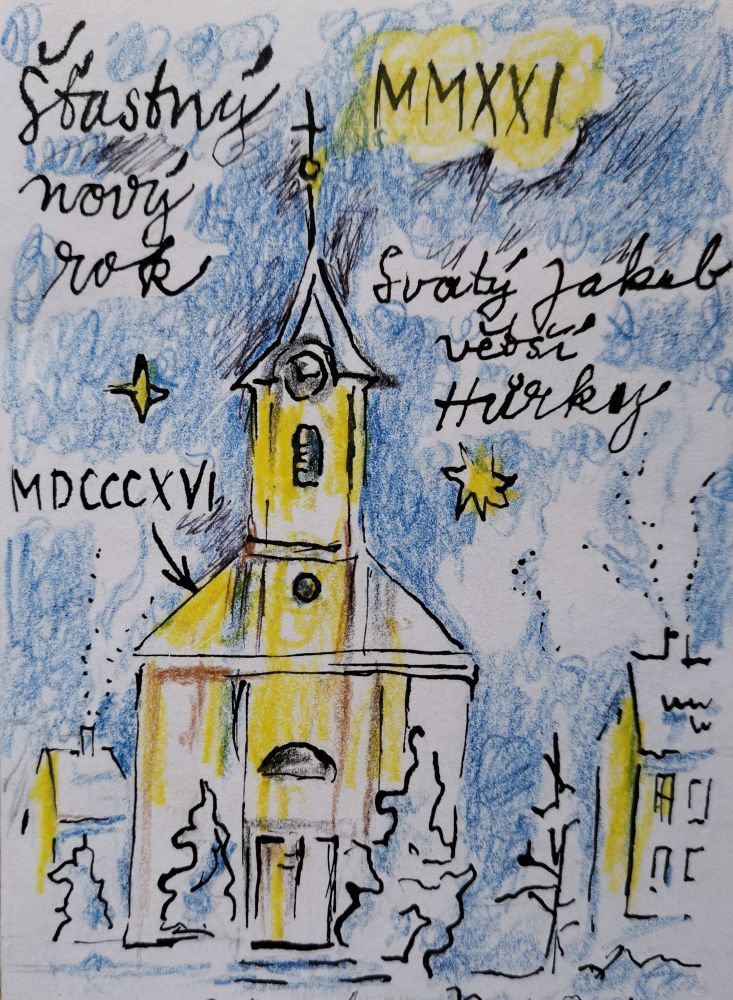 Šťastný
nový
rok
MMXXI
Svatý Jakub
větší
Hůrky
MDCCCXVI